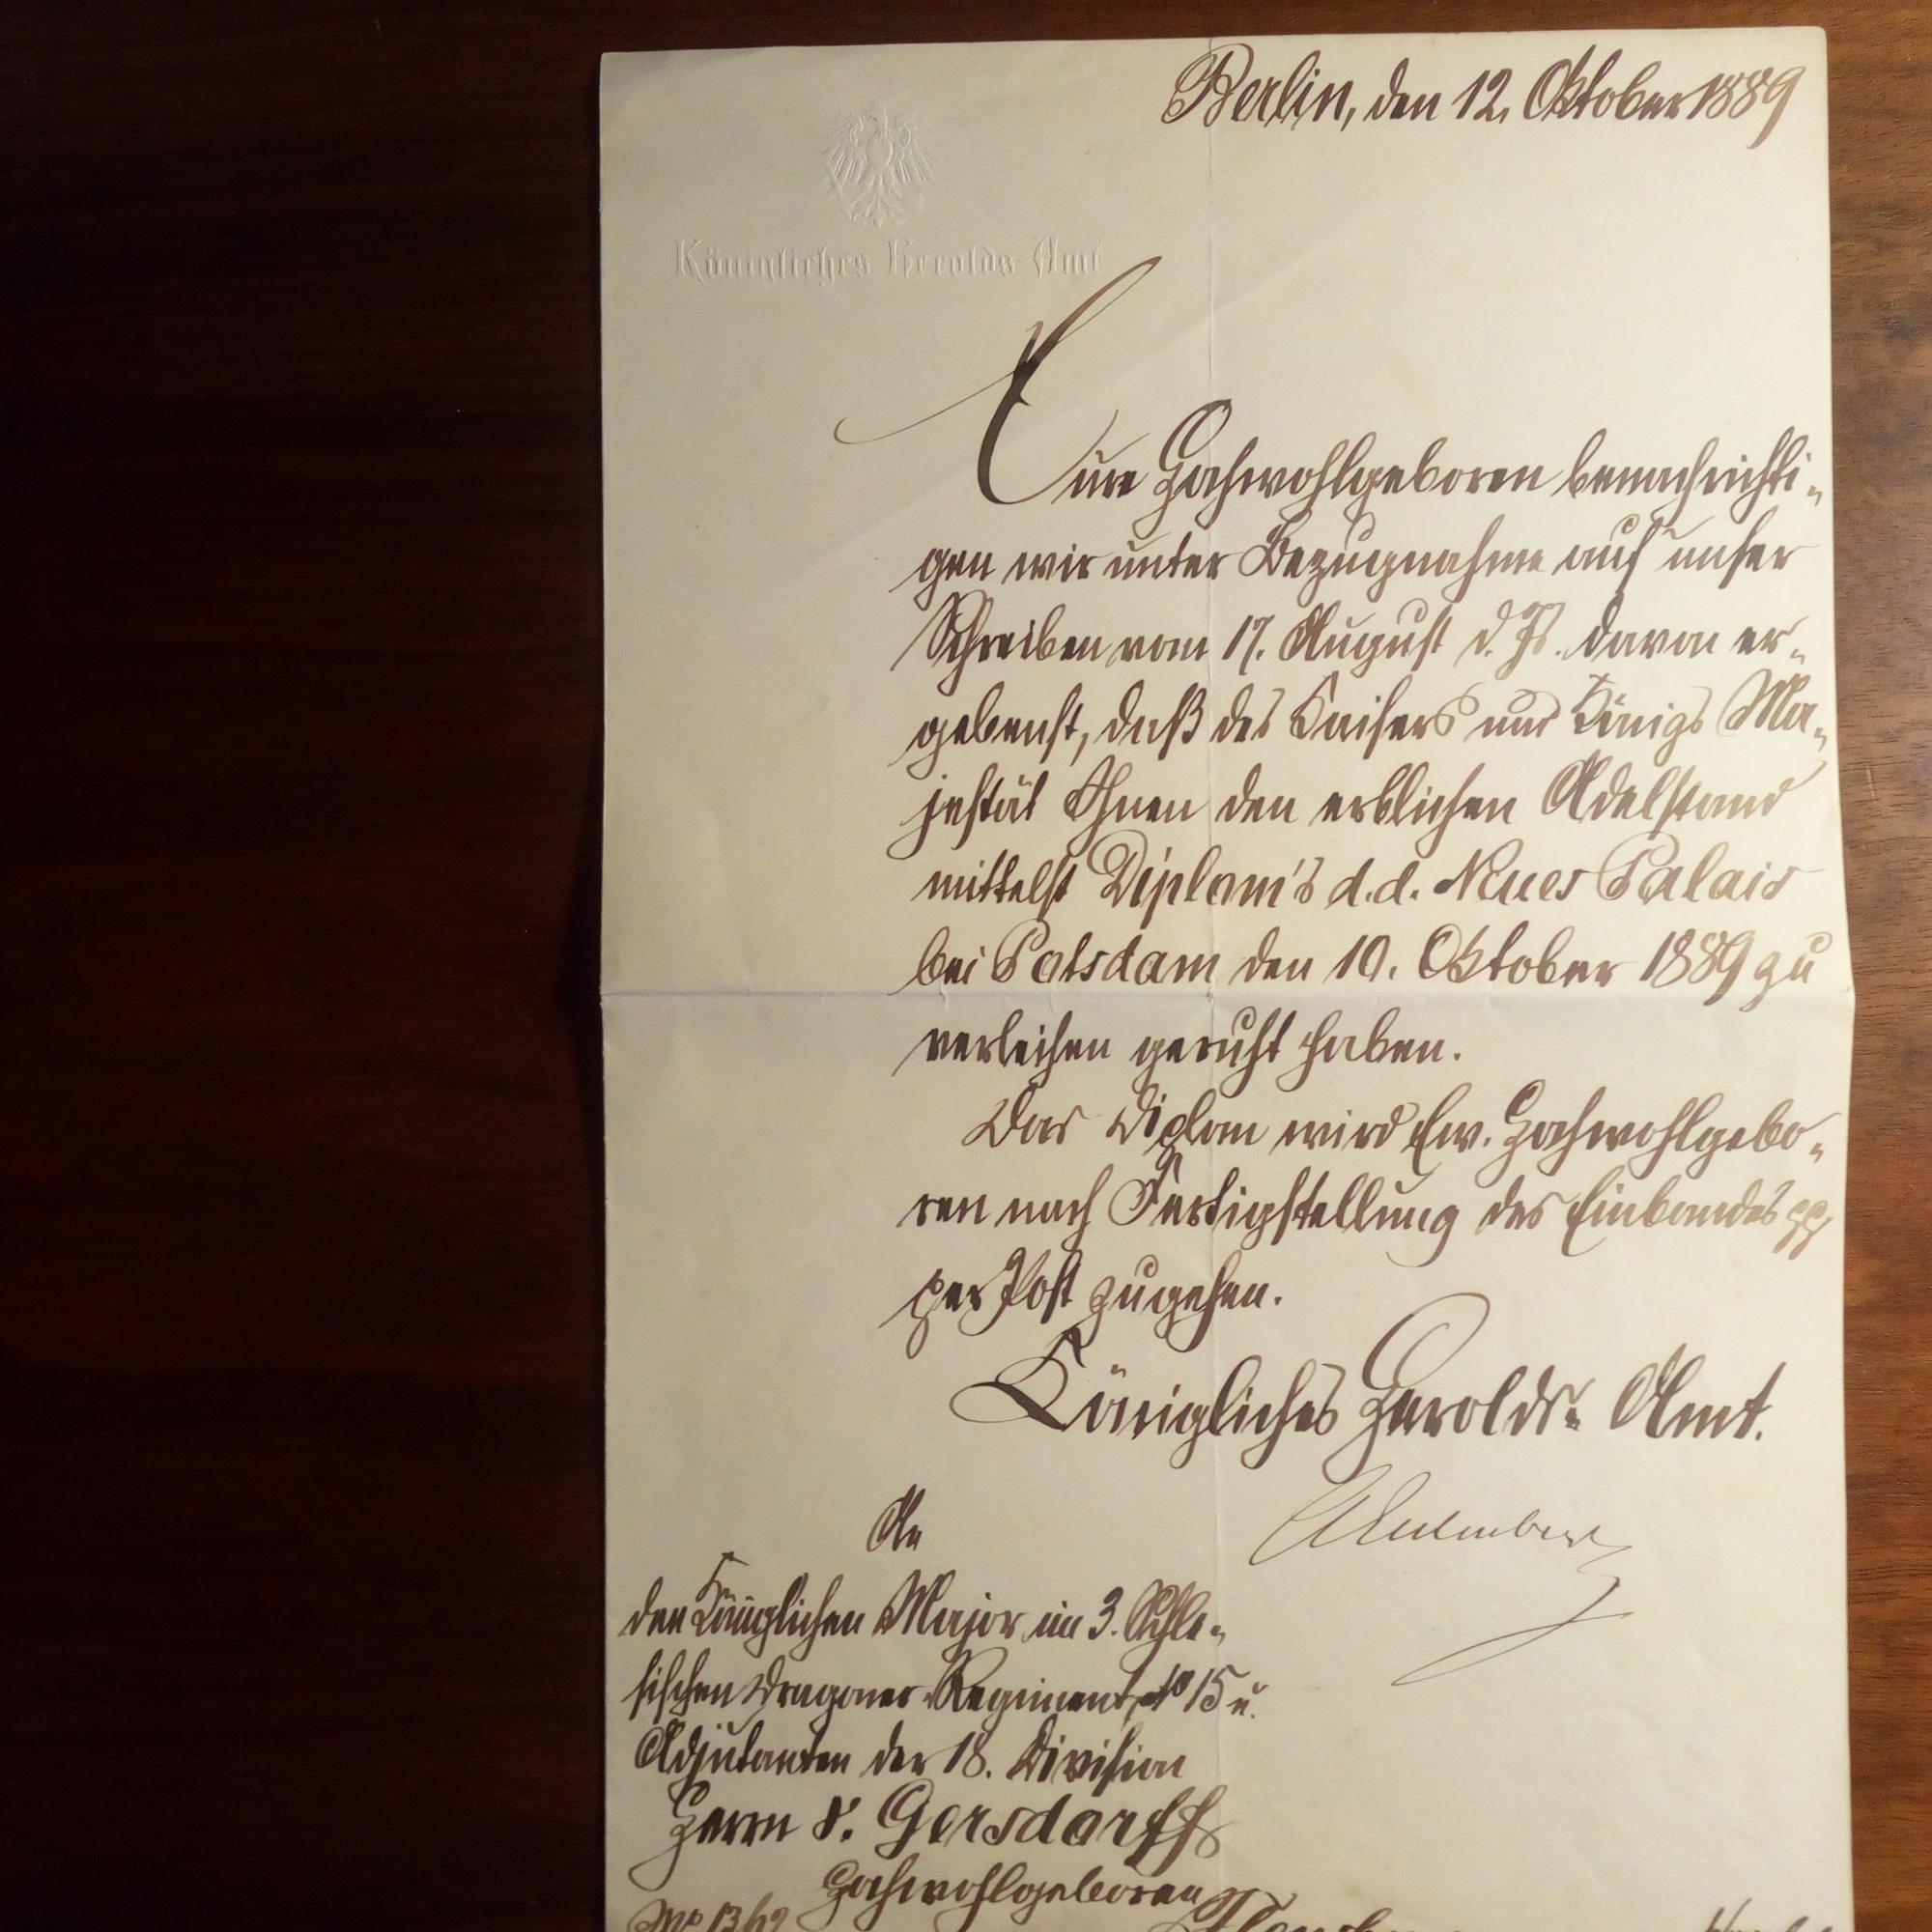 Berlin, den 12. Oktober 1889
Königliches Herolds-Amt
Eure Hochwohlgeboren benachrichti-
gen wir unter Bezugnahme auf unser
Schreiben vom 17. August d. Js. davon er-
gebenst, daß des Kaisers und Königs Ma-
jestät Ihnen den erblichen Adelstand
mittelst Diplom's d.d. Neues Palais
bei Potsdam den 10. Oktober 1889 zu
verleihen geruht haben.
Das Diplom wird Ew. Hochwohlgebo-
ren nach Fertigstellung des Einbandes pp
per Post zugehen.
Königliches Herolds-Amt.
An
den Königlichen Major im 3. Schle-
sischen Dragoner-Regiment No 15 u.
Adjutanten der 18. Division
Herrn v. Gersdorff
Hochwohlgeboren